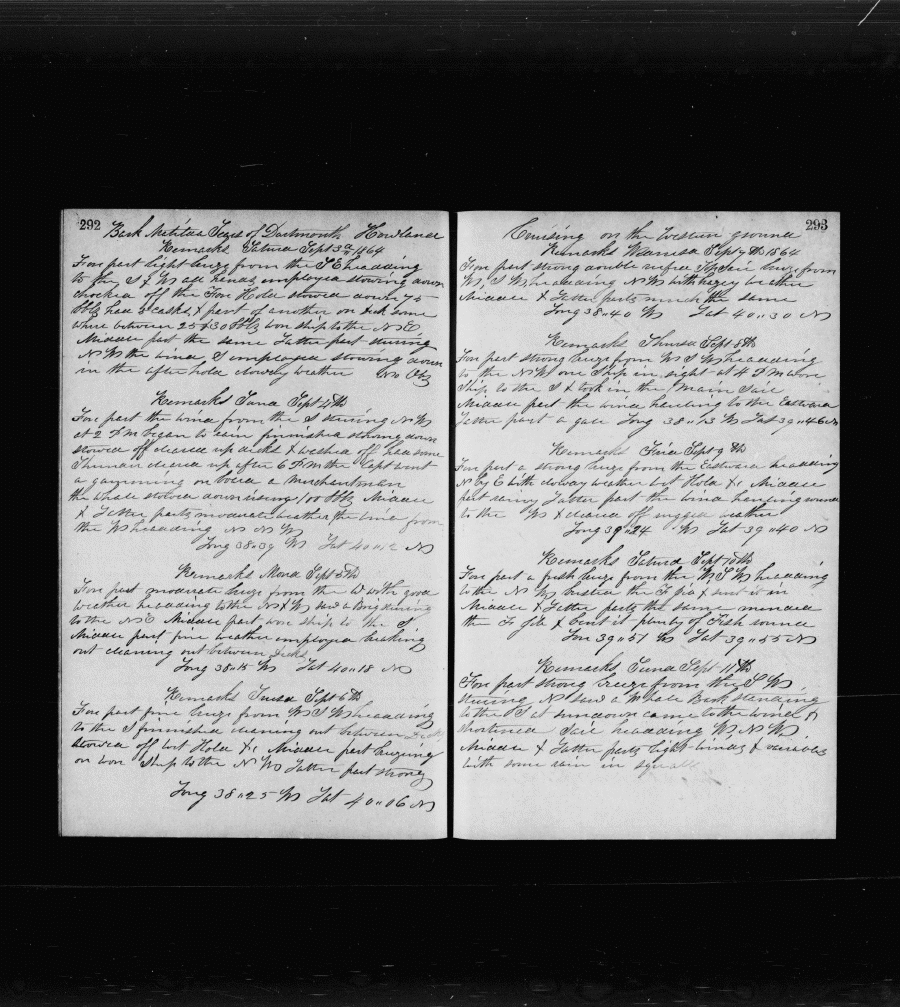 292
Bark Matilda Sears of Dartmouth Howland
Remarks Saturd Sept 3d 1864
Fore part light breeze from the S E heading
to the S & W all hands employed stowing down
chocked off the Fore Hold stowed down 75
bbls had 3 casks & part of another on deck some
where between 25 & 30 bbls wore ship to the N E
Middle part the same Latter part steering
N W the wind S employed stowing down
in the after hold clowdy weather No Obs
Remarks Sund Sept 4th
Fore part the wind from the S steering N W
at 2 P m began to rain finnished stowing down
stowed off cleared up decks & washed off had some
Thunder cleared up after 6 P m the Capt went
a gamming on board a merchantman
the whale stowed down 100 bbls Middle
& Latter parts moderate weather the wind from
the W heading N N W
Long 38..39 W Lat 40..12 N
Remarks Mond Sept 5th
Fore part moderate breeze from the W with good
weather heading to the N & W saw a Brig steering
to the N E Middle part wore ship to the S
Middle part fine weather employed breaking
out cleaning out between Decks
Long 38..15 W Lat 40..18 N
Remarks Tuesd Sept 6th
Fore part fine breeze from W S W heading
to the S finnished cleaning out between Decks
stowed off bot Hold &c Middle part breezing
on wore Ship to the N W Latter part strong
Long 38..25 W Lat 40..06 N
293
Cruising on the Western ground
Remarks Wdnesd Sept 7th 1864
Fore part strong double reefed Top Sail breeze from
W S W heading N W with hazy weather
Middle & Latter parts much the same
Long 38..40 W Lat 40..30 N
Remarks Thursd Sept 8th
Fore part strong breeze from W S W heading
to the N W one Ship in sight at 4 P m wore
Ship to the S & took in the Main Sail
Middle part the wind hauling to the Eastward
Latter part a gale Long 38..13 W Lat 39..46 N
Remarks Frid Sept 9th
Fore part a strong breeze from the Eastward heading
N by E with clowdy weather bot Hold &c Middle
part rainy Latter part the wind hauling round
to the W & cleared off rugged weather
Long 39..24 W Lat 39..40 N
Remarks Saturd Sept 10th
Fore part a fresh breeze from the W S W heading
to the N W busted the F jib & sent it in
Middle & Latter parts the same mended
the F Jib & bent it plenty of Fish round
Lon 39..51 W Lat 39..55 N
Remarks Sund Sept 11th
Fore part strong breeze from the S W
steering N saw a Whale Bark standing
to the S at sundown came to the wind &
shortened Sail heading W N W
Middle & Latter parts light winds & variable
with some rain in squalls